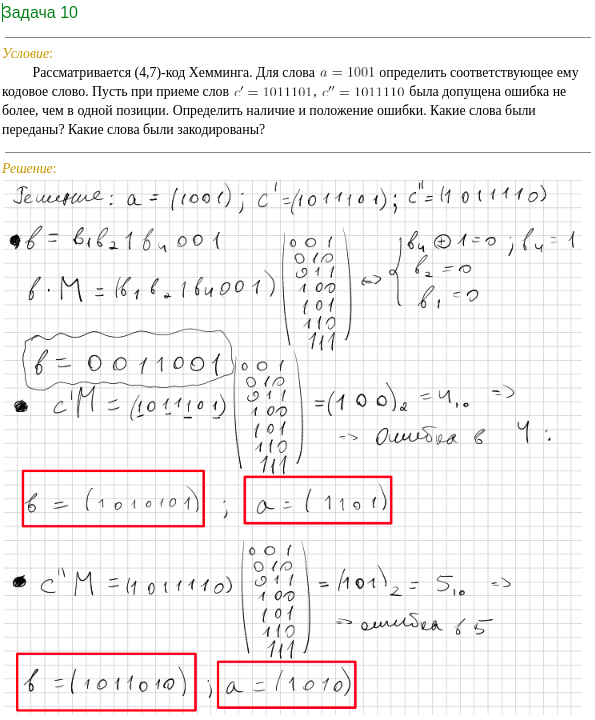 Задача 10
Условие:
Рассматривается (4,7)-код Хемминга. Для слова a = 1001 определить соответствующее ему
кодовое слово. Пусть при приеме слов c′ = 1011101, c″ = 1011110 была допущена ошибка не
более, чем в одной позиции. Определить наличие и положение ошибки. Какие слова были
переданы? Какие слова были закодированы?
Решение:
Решение: a = (1001); c' = (1011101); c'' = (1011110)
b = b₁b₂1b₄001
b · M = (b₁b₂1b₄001)
001
010
011
100
101
110
111
⇔
b₄ ⊕ 1 = 0; b₄ = 1
b₂ = 0
b₁ = 0
b = 0011001
c'M = (1011101)
001
010
011
100
101
110
111
= (100)₂ = 4₁₀ =>
=> Ошибка в 4:
b = (1010101) ; a = (1101)
c''M = (1011110)
001
010
011
100
101
110
111
= (101)₂ = 5₁₀ =>
=> ошибка в 5
b = (1011010) ; a = (1010)